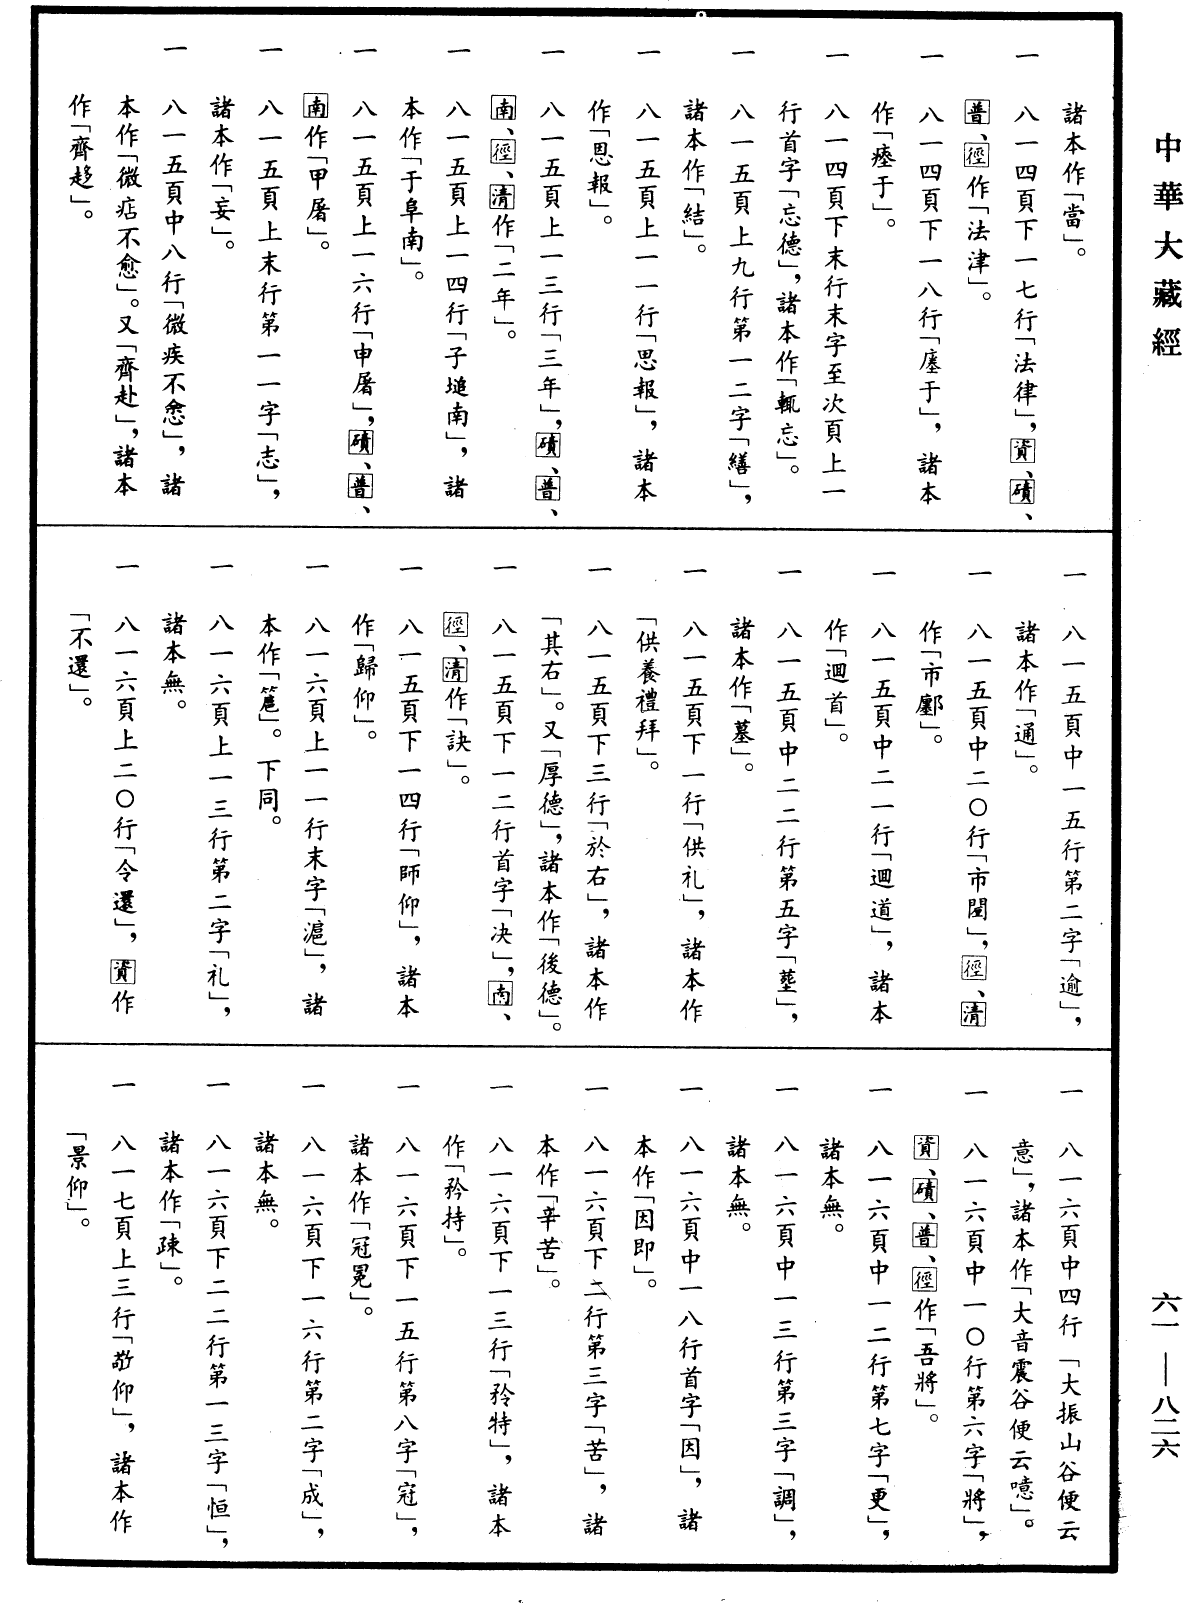 中華大藏經
六一—八二六
諸本作「當」。
一 八一四頁下一七行「法律」，資、磧、
普、徑作「法津」。
一 八一四頁下一八行「廛于」，諸本
作「瘞于」。
一 八一四頁下末行末字至次頁上一
行首字「忘德」，諸本作「輒忘」。
一 八一五頁上九行第一二字「繕」，
諸本作「結」。
一 八一五頁上一一行「思報」，諸本
作「恩報」。
一 八一五頁上一三行「三年」，磧、普、
南、徑、清作「二年」。
一 八一五頁上一四行「子塠南」，諸
本作「于阜南」。
一 八一五頁上一六行「申屠」，磧、普、
南作「甲屠」。
一 八一五頁上末行第一一字「志」，
諸本作「妄」。
一 八一五頁中八行「微疾不悆」，諸
本作「微痁不愈」。又「齊赴」，諸本
作「齊趍」。
一 八一五頁中一五行第二字「逾」，
諸本作「通」。
一 八一五頁中二〇行「市閠」，徑、清
作「市鄽」。
一 八一五頁中二一行「迴道」，諸本
作「迴首」。
一 八一五頁中二二行第五字「塟」，
諸本作「墓」。
一 八一五頁下一行「供礼」，諸本作
「供養禮拜」。
一 八一五頁下三行「於右」，諸本作
「其右」。又「厚德」，諸本作「後德」。
一 八一五頁下一二行首字「决」，南、
徑、清作「訣」。
一 八一五頁下一四行「師仰」，諸本
作「歸仰」。
一 八一六頁上一一行末字「滬」，諸
本作「篦」。下同。
一 八一六頁上一三行第二字「礼」，
諸本無。
一 八一六頁上二〇行「令還」，資作
「不還」。
一 八一六頁中四行「大振山谷便云
意」，諸本作「大音震谷便云噫」。
一 八一六頁中一〇行第六字「將」，
資、磧、普、徑作「吾將」。
一 八一六頁中一二行第七字「更」，
諸本無。
一 八一六頁中一三行第三字「調」，
諸本無。
一 八一六頁中一八行首字「因」，諸
本作「因即」。
一 八一六頁下二行第三字「苦」，諸
本作「辛苦」。
一 八一六頁下一三行「矜特」，諸本
作「矜持」。
一 八一六頁下一五行第八字「冠」，
諸本作「冠冕」。
一 八一六頁下一六行第二字「成」，
諸本無。
一 八一六頁下二二行第一三字「恒」，
諸本作「疎」。
一 八一七頁上三行「敬仰」，諸本作
「景仰」。